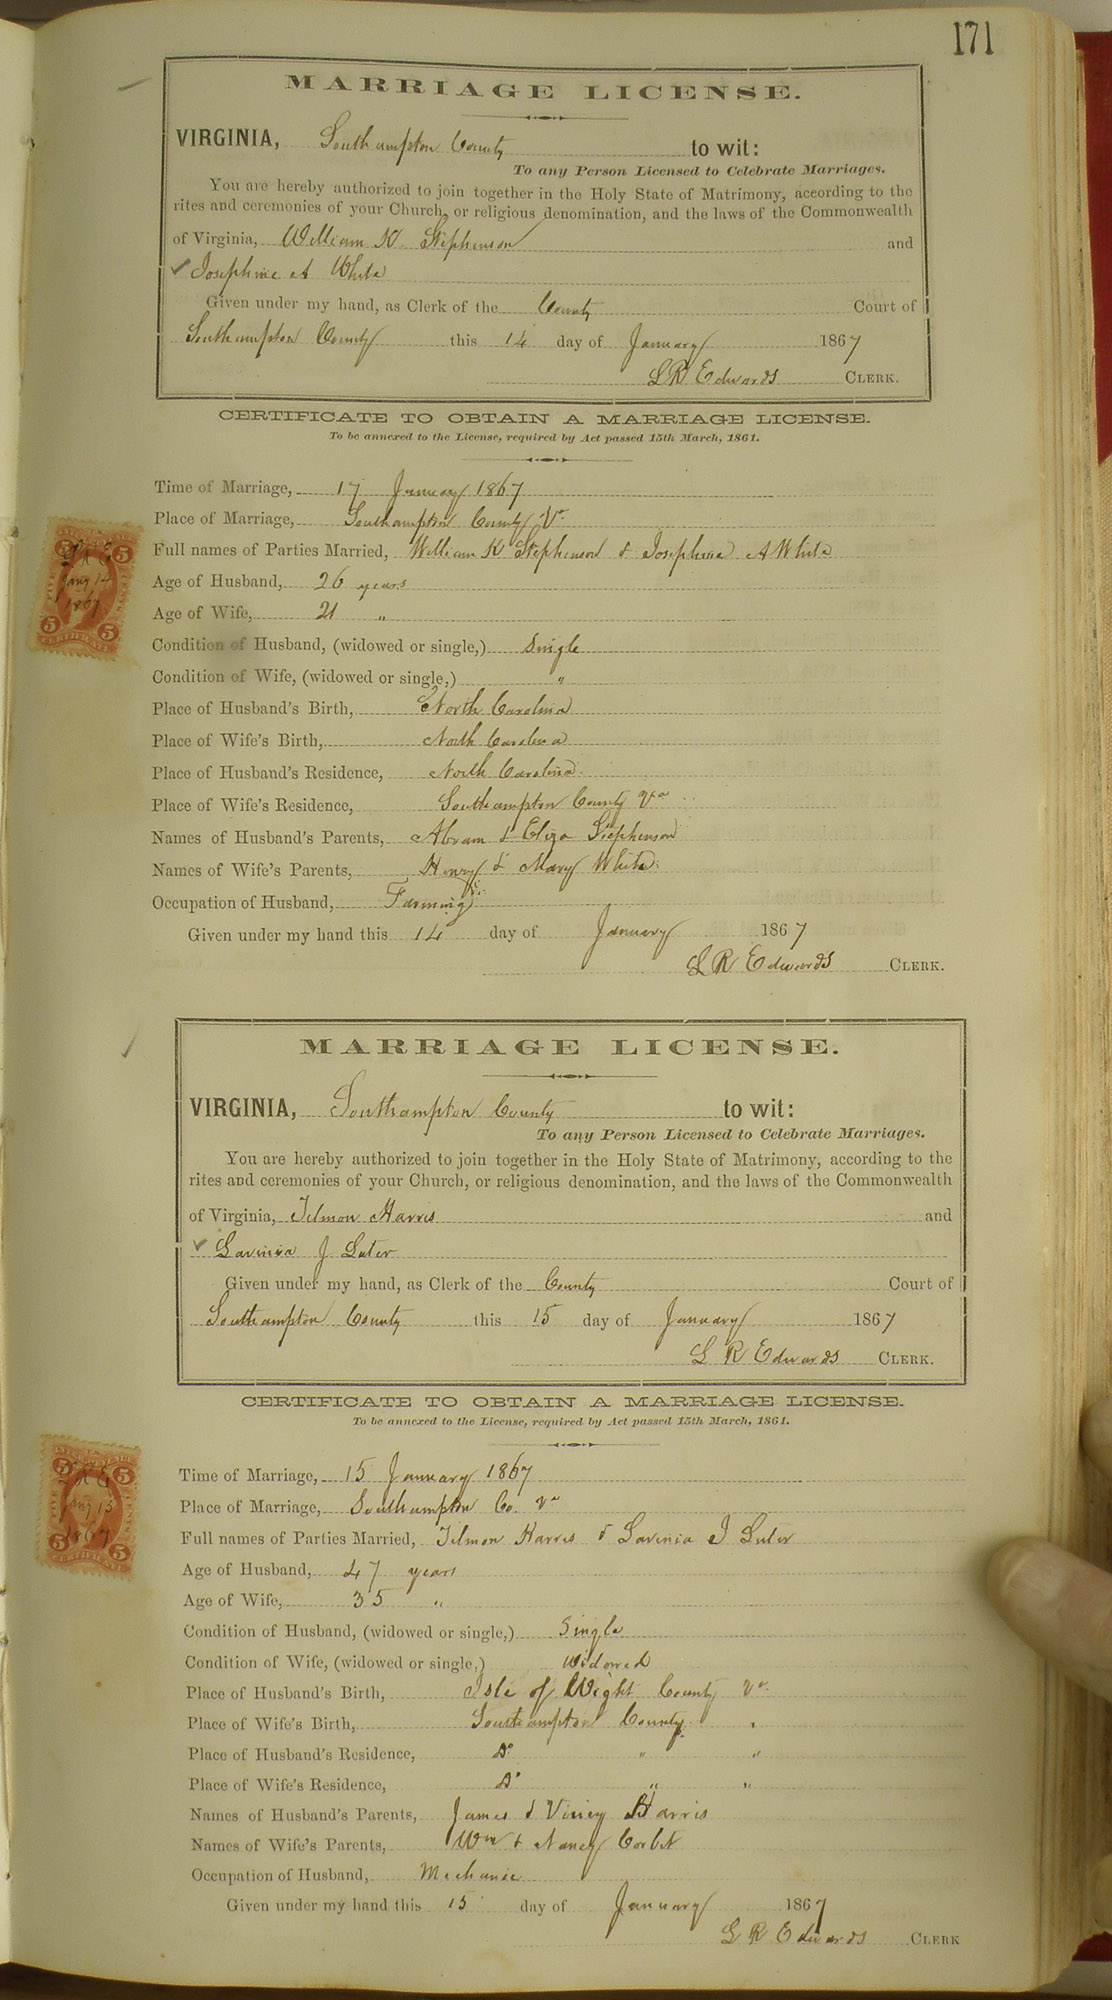 171
MARRIAGE LICENSE.
VIRGINIA, Southampton County to wit:
To any Person Licensed to Celebrate Marriages.
You are hereby authorized to join together in the Holy State of Matrimony, according to the
rites and ceremonies of your Church, or religious denomination, and the laws of the Commonwealth
of Virginia, William K. Stephenson and
Josephine A White
Given under my hand, as Clerk of the County Court of
Southampton County this 14 day of January 1867
L R Edwards CLERK.
CERTIFICATE TO OBTAIN A MARRIAGE LICENSE.
To be annexed to the License, required by Act passed 15th March, 1861.
Time of Marriage, 17 January 1867
Place of Marriage, Southampton County Va
Full names of Parties Married, William K Stephenson & Josephine A White
Age of Husband, 26 years
Age of Wife, 21 "
Condition of Husband, (widowed or single,) Single
Condition of Wife, (widowed or single,) "
Place of Husband's Birth, North Carolina
Place of Wife's Birth, North Carolina
Place of Husband's Residence, North Carolina
Place of Wife's Residence, Southampton County Va
Names of Husband's Parents, Abram & Eliza Stephenson
Names of Wife's Parents, Henry & Mary White
Occupation of Husband, Farming
Given under my hand this 14 day of January 1867
L R Edwards CLERK.
5 5
L R E
Jany 14
1867
5 5
CERTIFICATE
MARRIAGE LICENSE.
VIRGINIA, Southampton County to wit:
To any Person Licensed to Celebrate Marriages.
You are hereby authorized to join together in the Holy State of Matrimony, according to the
rites and ceremonies of your Church, or religious denomination, and the laws of the Commonwealth
of Virginia, Tilmon Harris and
Lavinia J Luter
Given under my hand, as Clerk of the County Court of
Southampton County this 15 day of January 1867
L R Edwards CLERK.
CERTIFICATE TO OBTAIN A MARRIAGE LICENSE.
To be annexed to the License, required by Act passed 15th March, 1861.
Time of Marriage, 15 January 1867
Place of Marriage, Southampton Co. Va
Full names of Parties Married, Tilmon Harris & Lavinia J Luter
Age of Husband, 47 years
Age of Wife, 35 "
Condition of Husband, (widowed or single,) Single
Condition of Wife, (widowed or single,) Widowed
Place of Husband's Birth, Isle of Wight County Va
Place of Wife's Birth, Southampton County "
Place of Husband's Residence, Do " "
Place of Wife's Residence, Do " "
Names of Husband's Parents, James & Viney Harris
Names of Wife's Parents, Wm & Nancy Corbit
Occupation of Husband, Mechanic
Given under my hand this 15 day of January 1867
L R Edwards CLERK
5 5
L R E
Jany 15
1867
5 5
CERTIFICATE